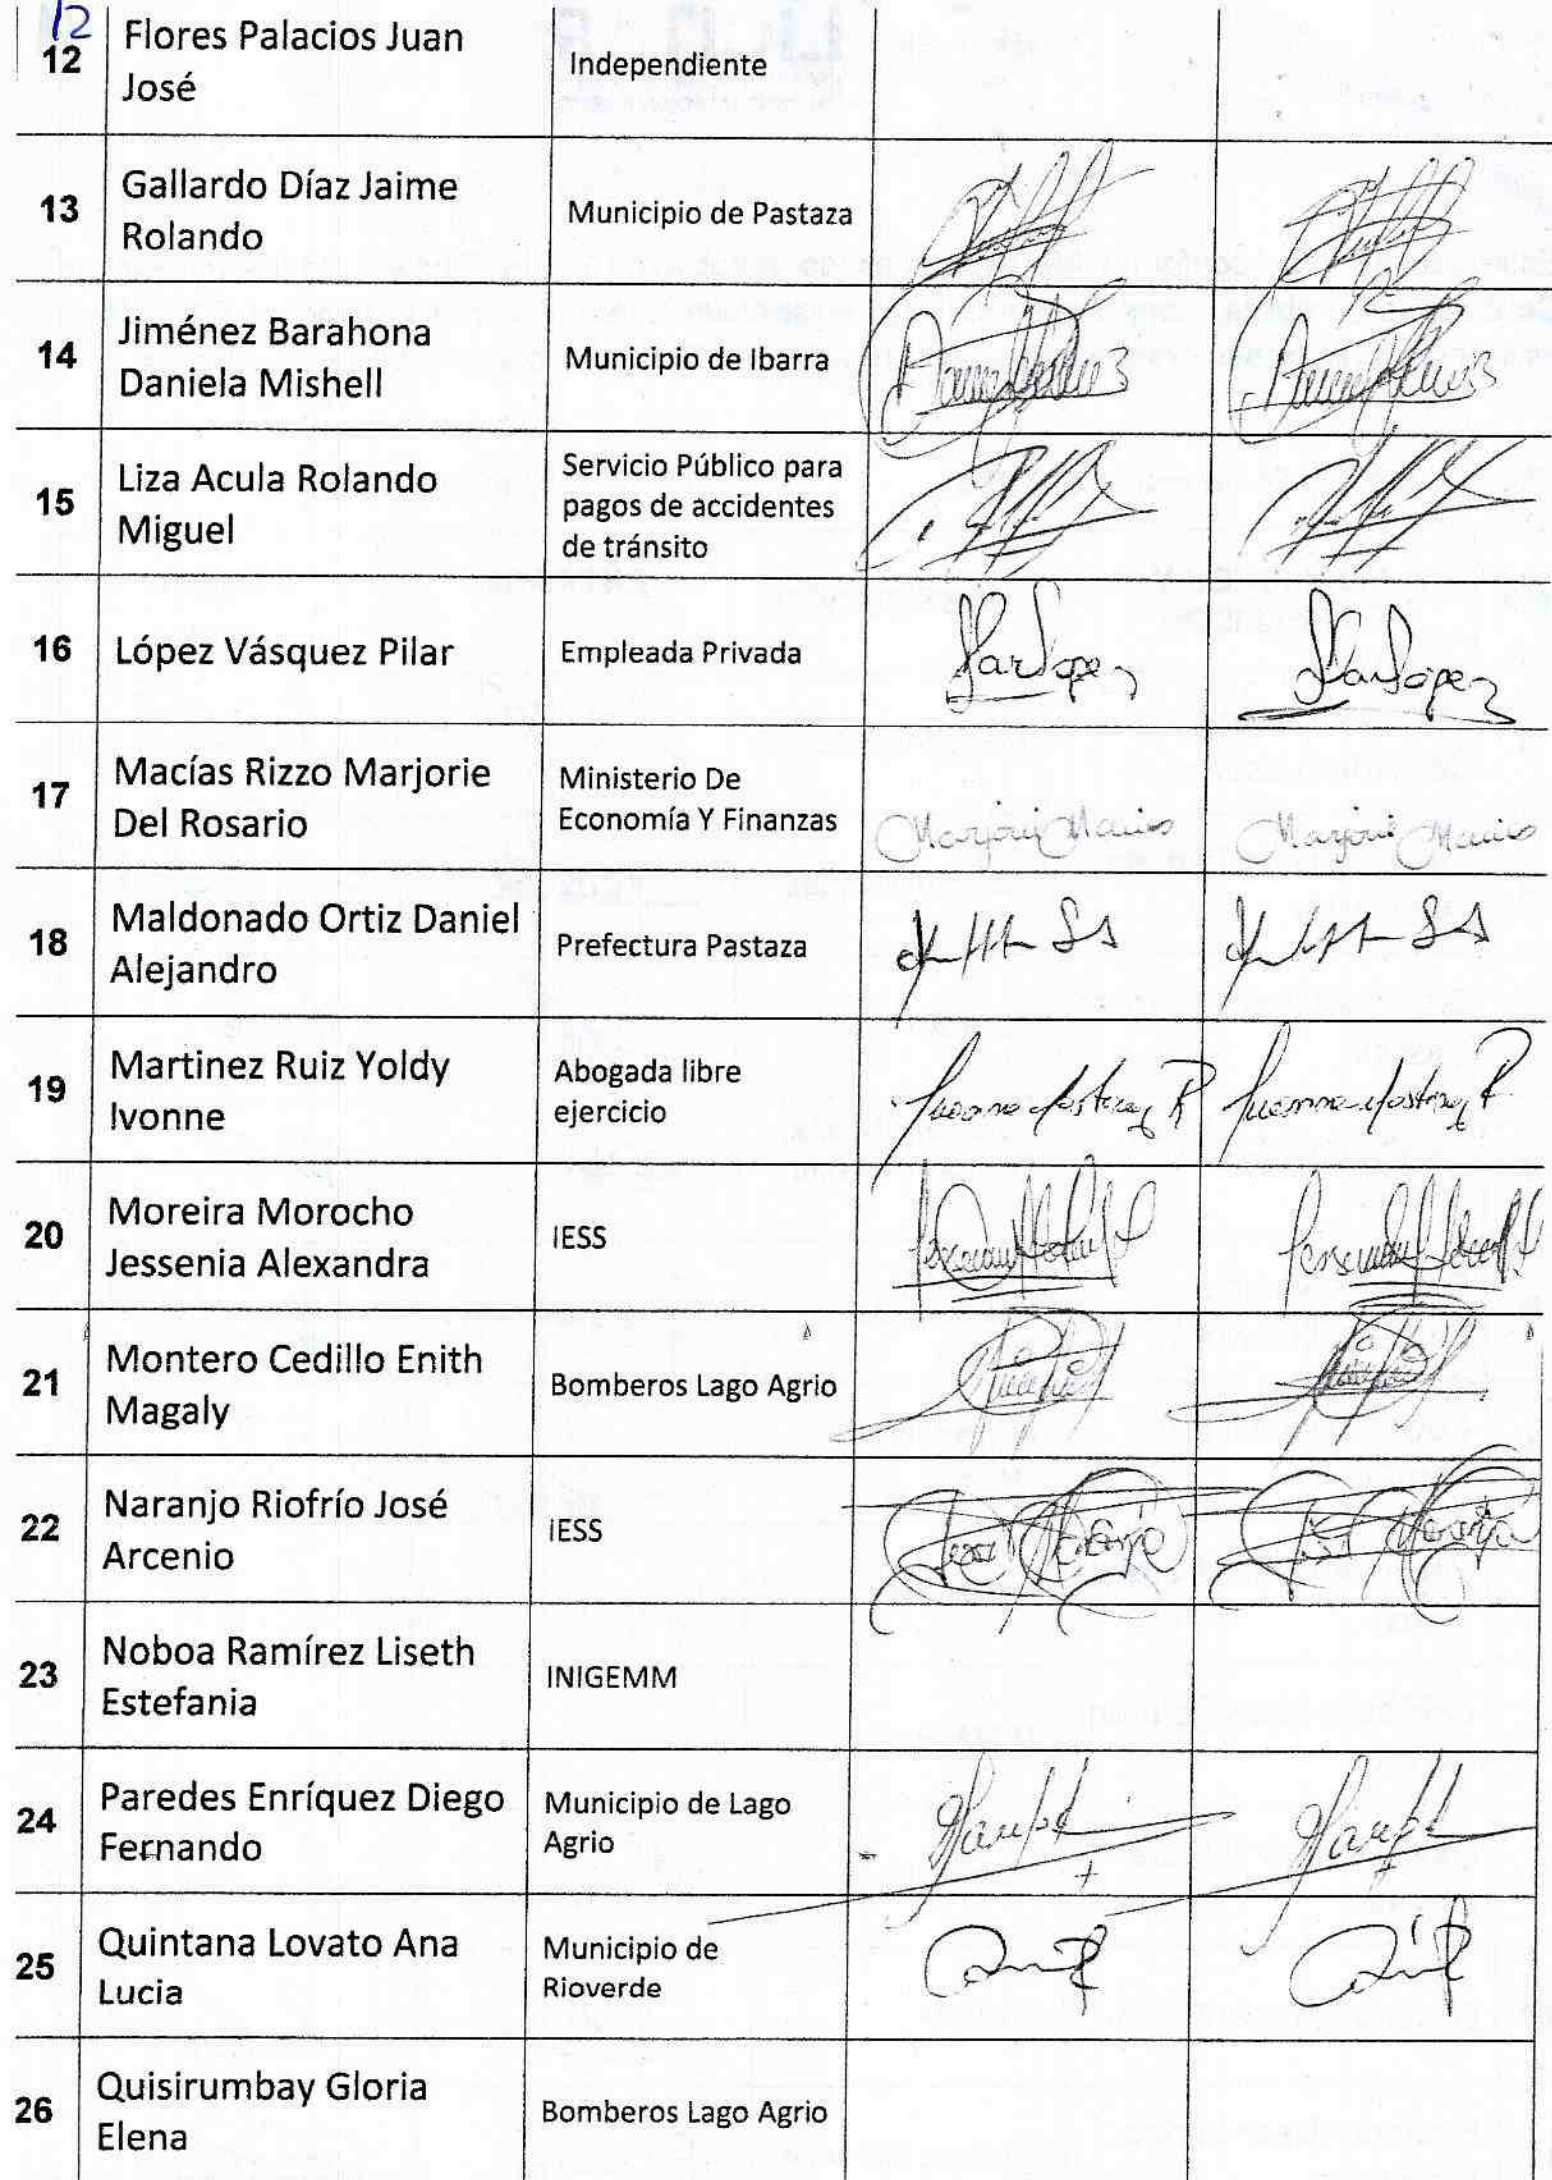 12
12
Flores Palacios Juan
José
Independiente
13
Gallardo Díaz Jaime
Rolando
Municipio de Pastaza
14
Jiménez Barahona
Daniela Mishell
Municipio de Ibarra
15
Liza Acula Rolando
Miguel
Servicio Público para
pagos de accidentes
de tránsito
16
López Vásquez Pilar
Empleada Privada
17
Macías Rizzo Marjorie
Del Rosario
Ministerio De
Economía Y Finanzas
Marjorie Macias
Marjorie Macias
18
Maldonado Ortiz Daniel
Alejandro
Prefectura Pastaza
19
Martinez Ruiz Yoldy
Ivonne
Abogada libre
ejercicio
20
Moreira Morocho
Jessenia Alexandra
IESS
21
Montero Cedillo Enith
Magaly
Bomberos Lago Agrio
22
Naranjo Riofrío José
Arcenio
IESS
23
Noboa Ramírez Liseth
Estefania
INIGEMM
24
Paredes Enríquez Diego
Fernando
Municipio de Lago
Agrio
25
Quintana Lovato Ana
Lucia
Municipio de
Rioverde
26
Quisirumbay Gloria
Elena
Bomberos Lago Agrio